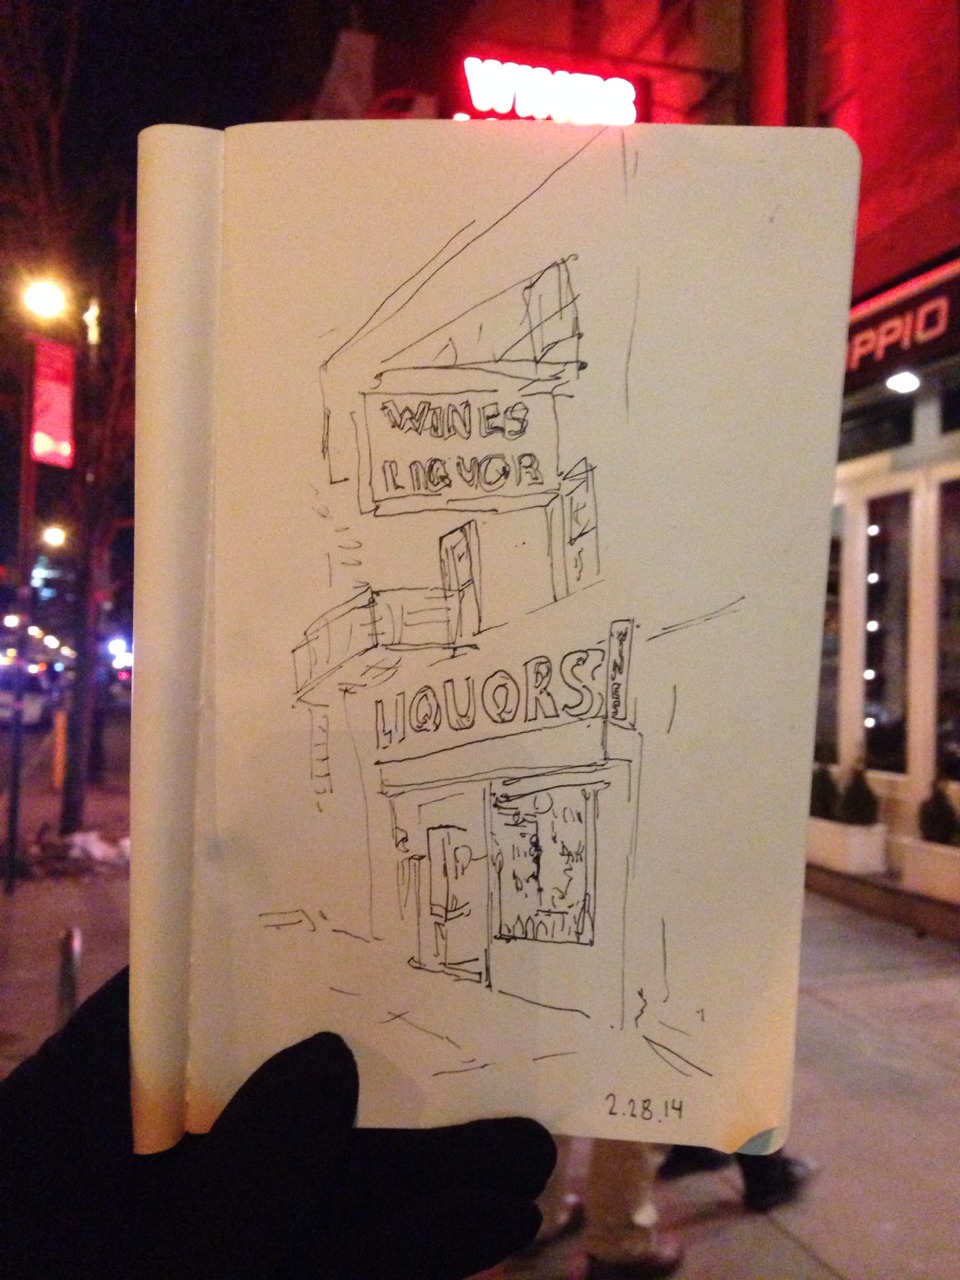 WINES
PPIO
WINES
LIQUOR
LIQUORS
2.28.14